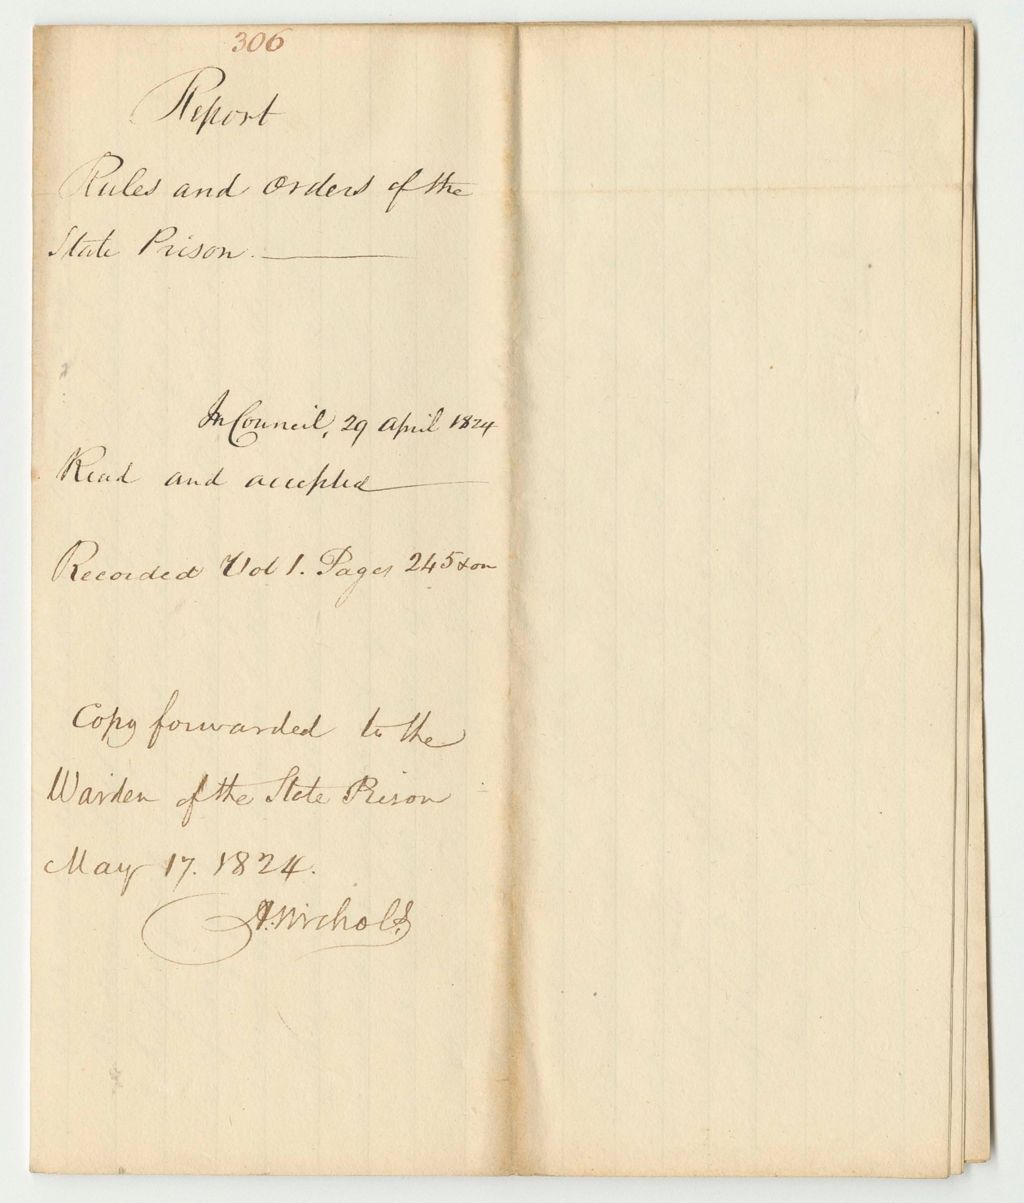 306
Report
Rules and orders of the
State Prison.
In Council, 29 April 1824
Read and accepted
Recorded Vol 1. Pages 245 & on
Copy forwarded to the
Warden of the State Prison
May 17. 1824.
A. Nichols